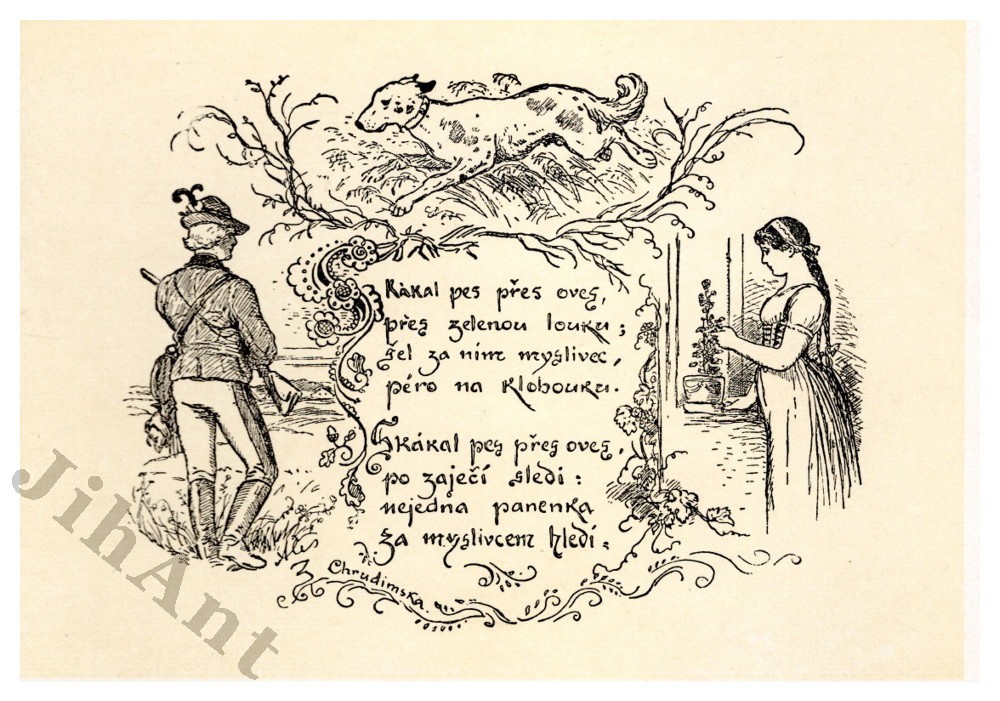 Skákal pes přes oves,
přes zelenou louku;
šel za ním myslivec,
péro na klobouku.
Skákal pes přes oves,
po zaječí sledi:
nejedna panenka
za myslivcem hledí.
Z Chrudimska.
JihAnt